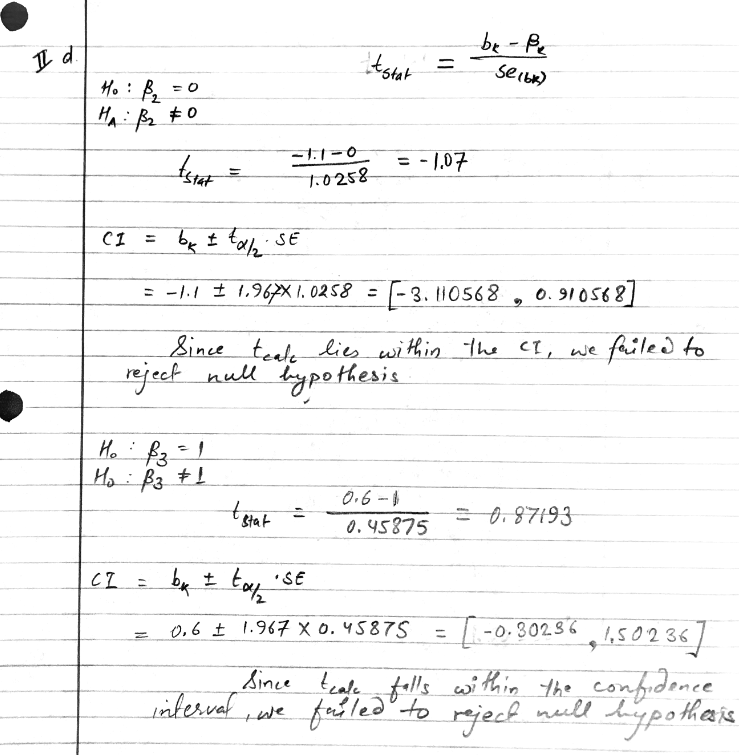 II d
t_stat = (b_k − β_k) / se(b_k)
H₀ : β₂ = 0
H_A : β₂ ≠ 0
t_stat = (−1.1−0) / 1.0258 = −1.07
CI = b_k ± t_α/2 · SE
= −1.1 ± 1.967 × 1.0258 = [−3.110568 , 0.910568]
Since t_calc lies within the CI, we failed to
reject null hypothesis
H₀ : β₃ = 1
H₀ : β₃ ≠ 1
t_stat = (0.6 − 1) / 0.45875 = 0.87193
CI = b_k ± t_α/2 · SE
= 0.6 ± 1.967 × 0.45875 = [−0.30236 , 1.50236]
Since t_calc falls within the confidence
interval, we failed to reject null hypothesis